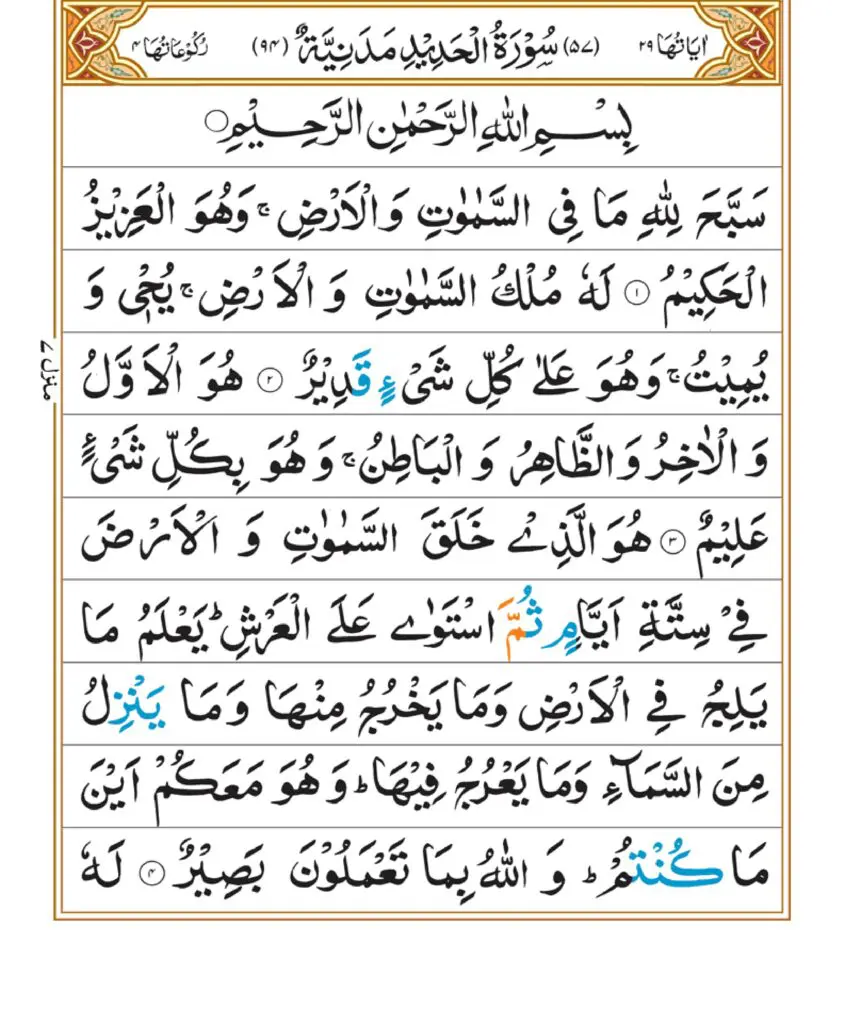 اٰيَاتُهَا ٢٩ (٥٧) سُوْرَةُ الْحَدِيْدِ مَدَنِيَّةٌ (٩٤) رُكُوْعَاتُهَا ٤
بِسْمِ اللّٰهِ الرَّحْمٰنِ الرَّحِيْمِ ○
سَبَّحَ لِلّٰهِ مَا فِى السَّمٰوٰتِ وَالْاَرْضِ ۚ وَهُوَ الْعَزِيْزُ
الْحَكِيْمُ ۝١ لَهٗ مُلْكُ السَّمٰوٰتِ وَ الْاَرْضِ ۚ يُحْىٖ وَ
يُمِيْتُ ۚ وَهُوَ عَلٰى كُلِّ شَىْءٍ قَدِيْرٌ ۝٢ هُوَ الْاَوَّلُ
وَ الْاٰخِرُ وَالظَّاهِرُ وَ الْبَاطِنُ ۚ وَ هُوَ بِكُلِّ شَىْءٍ
عَلِيْمٌ ۝٣ هُوَ الَّذِىْ خَلَقَ السَّمٰوٰتِ وَ الْاَرْضَ
فِىْ سِتَّةِ اَيَّامٍ ثُمَّ اسْتَوٰى عَلَى الْعَرْشِ ؕ يَعْلَمُ مَا
يَلِجُ فِى الْاَرْضِ وَمَا يَخْرُجُ مِنْهَا وَمَا يَنْزِلُ
مِنَ السَّمَآءِ وَمَا يَعْرُجُ فِيْهَا ؕ وَ هُوَ مَعَكُمْ اَيْنَ
مَا كُنْتُمْ ؕ وَ اللّٰهُ بِمَا تَعْمَلُوْنَ بَصِيْرٌ ۝٤ لَهٗ
منزل ٧